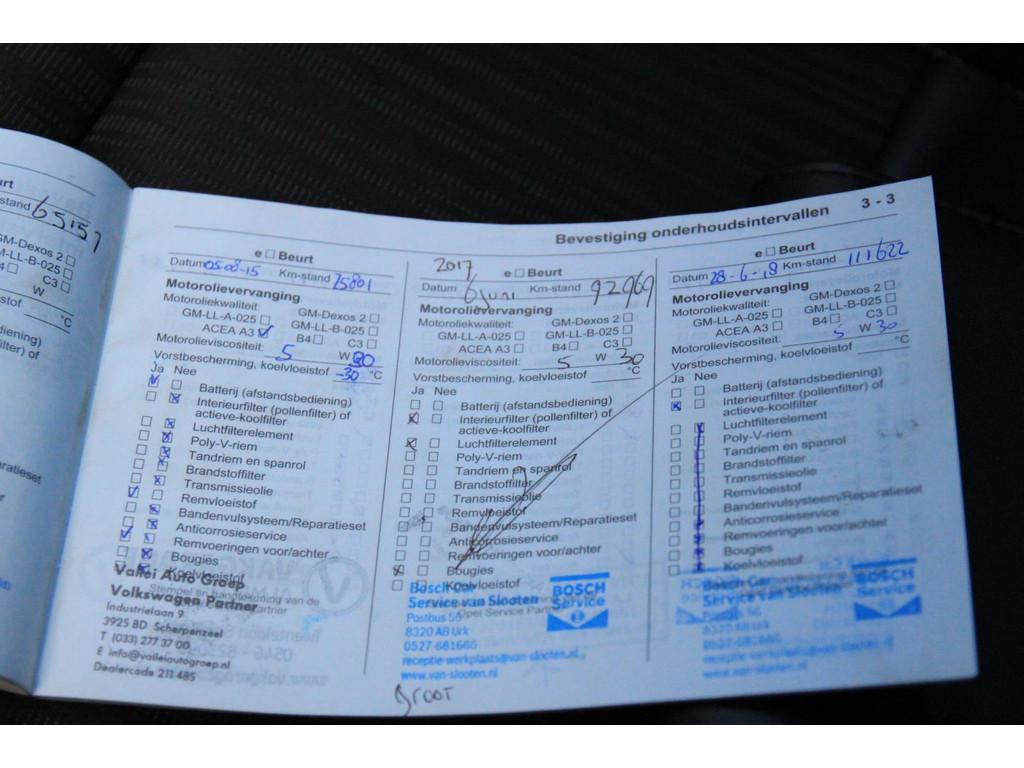 Beurt
stand 65157
GM-Dexos 2
LL-B-025
4
W
°C
Bevestiging onderhoudsintervallen 3 - 3
e Beurt
Datum 05-08-15 Km-stand 75801
Motorolievervanging
Motoroliekwaliteit:
GM-Dexos 2
GM-LL-A-025 GM-LL-B-025
ACEA A3 B4 C3
Motorolieviscositeit: 5 W 30
Vorstbescherming, koelvloeistof -30 °C
Ja Nee
Batterij (afstandsbediening)
Interieurfilter (pollenfilter) of
actieve-koolfilter
Luchtfilterelement
Poly-V-riem
Tandriem en spanrol
Brandstoffilter
Transmissieolie
Remvloeistof
Bandenvulsysteem/Reparatieset
Anticorrosieservice
Remvoeringen voor/achter
Bougies
Koelvloeistof
Stempel en handtekening van de
Vallei Auto Groep
Volkswagen Partner
Industrielaan 9
3925 BD Scherpenzeel
T (033) 277 37 00
E info@valleiautogroep.nl
Dealercode 211485
2017
e Beurt
Datum 6 juni Km-stand 92969
Motorolievervanging
Motoroliekwaliteit:
GM-Dexos 2
GM-LL-A-025 GM-LL-B-025
ACEA A3 B4 C3
Motorolieviscositeit: 5 W 30
Vorstbescherming, koelvloeistof °C
Ja Nee
Batterij (afstandsbediening)
Interieurfilter (pollenfilter) of
actieve-koolfilter
Luchtfilterelement
Poly-V-riem
Tandriem en spanrol
Brandstoffilter
Transmissieolie
Remvloeistof
Bandenvulsysteem/Reparatieset
Anticorrosieservice
Remvoeringen voor/achter
Bougies
Koelvloeistof
Opel Service Partner
Bosch Car
Service van Slooten
Postbus 56
8320 AB Urk
0527-681666
receptie-werkplaats@van-slooten.nl
www.van-slooten.nl
BOSCH
Service
GROOT
e Beurt
Datum 28-6-18 Km-stand 111622
Motorolievervanging
Motoroliekwaliteit:
GM-Dexos 2
GM-LL-A-025 GM-LL-B-025
ACEA A3 B4 C3
Motorolieviscositeit: 5 W 30
Vorstbescherming, koelvloeistof °C
Ja Nee
Batterij (afstandsbediening)
Interieurfilter (pollenfilter) of
actieve-koolfilter
Luchtfilterelement
Poly-V-riem
Tandriem en spanrol
Brandstoffilter
Transmissieolie
Remvloeistof
Bandenvulsysteem/Reparatieset
Anticorrosieservice
Remvoeringen voor/achter
Bougies
Koelvloeistof
Bosch Car
Service van Slooten
Postbus 56
8320 AB Urk
0527-681666
receptie-werkplaats@van-slooten.nl
www.van-slooten.nl
BOSCH
Service